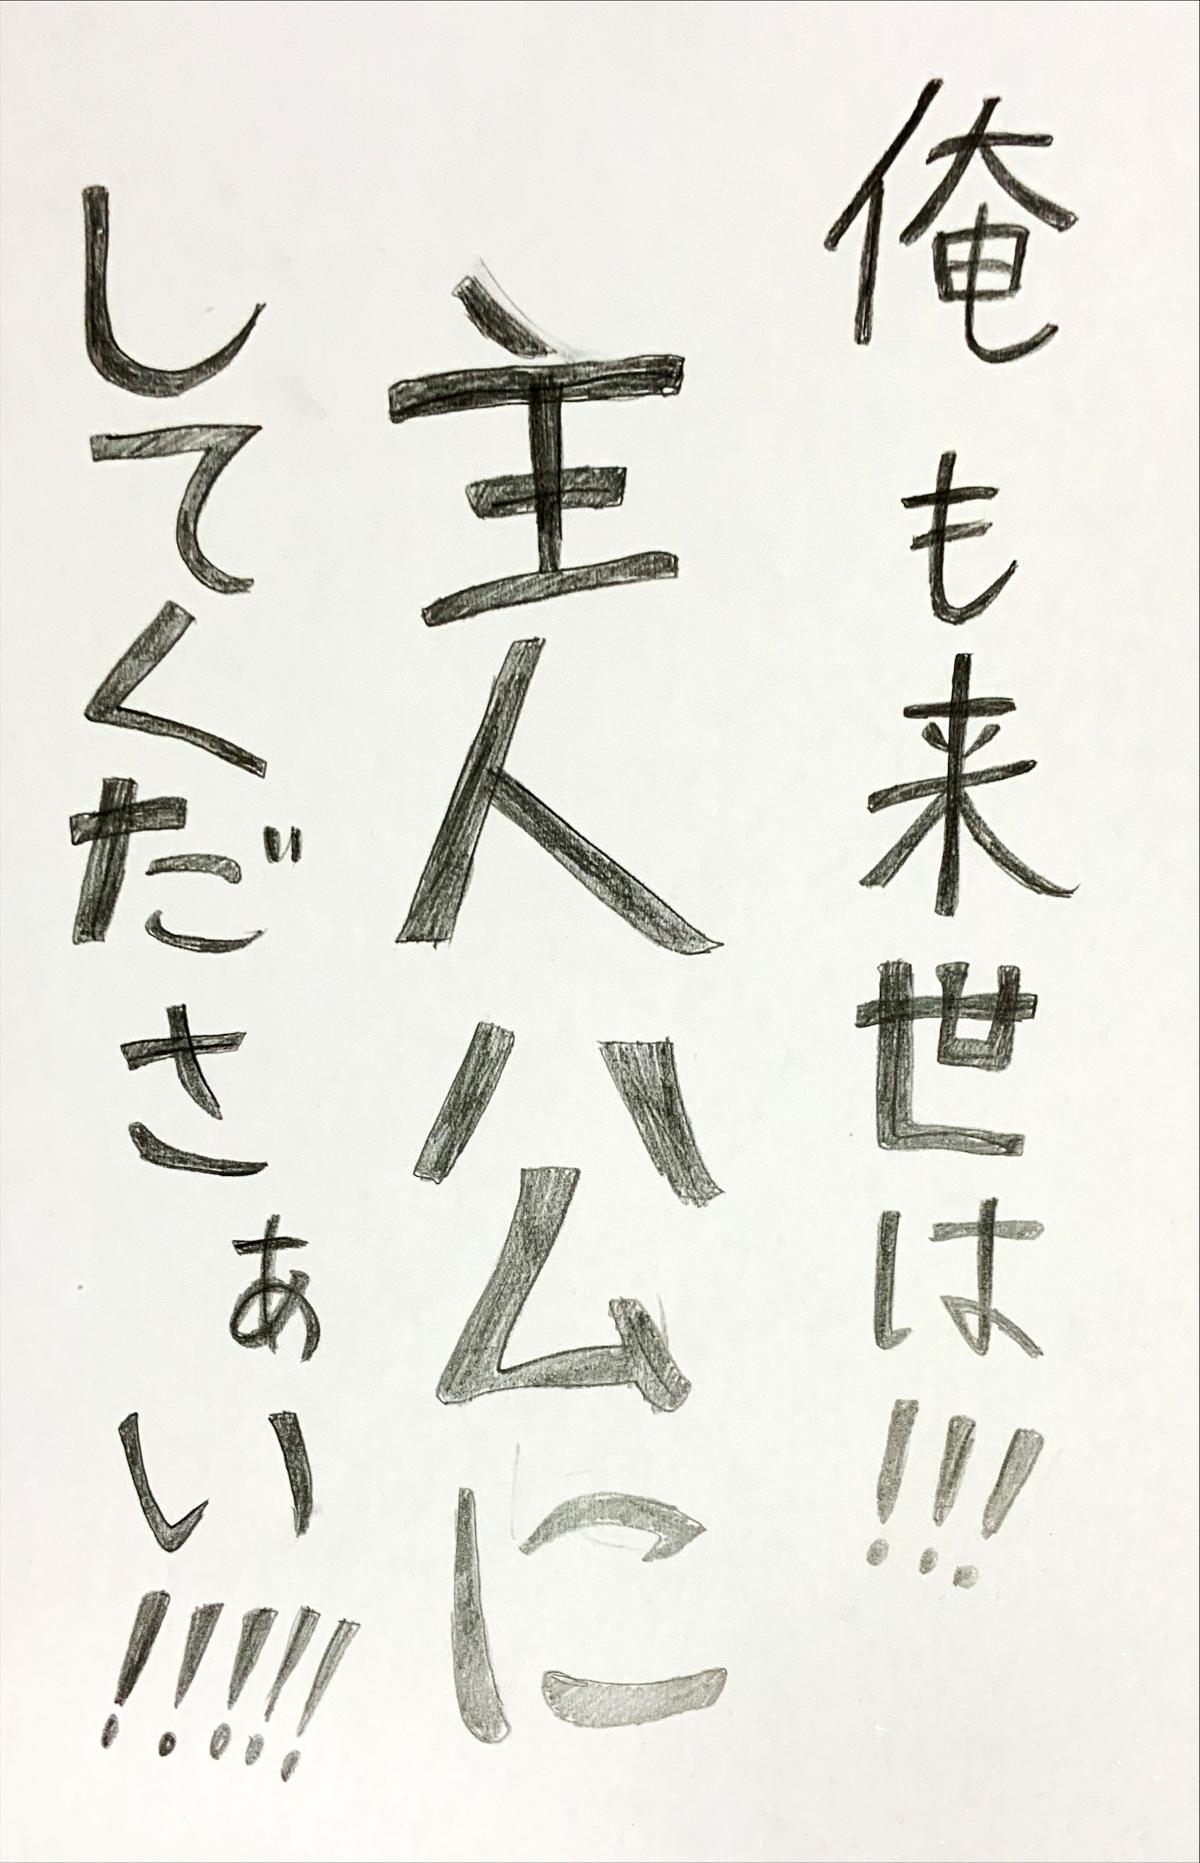 俺も来世は!!!
主人公に
してくださぁい!!!!!